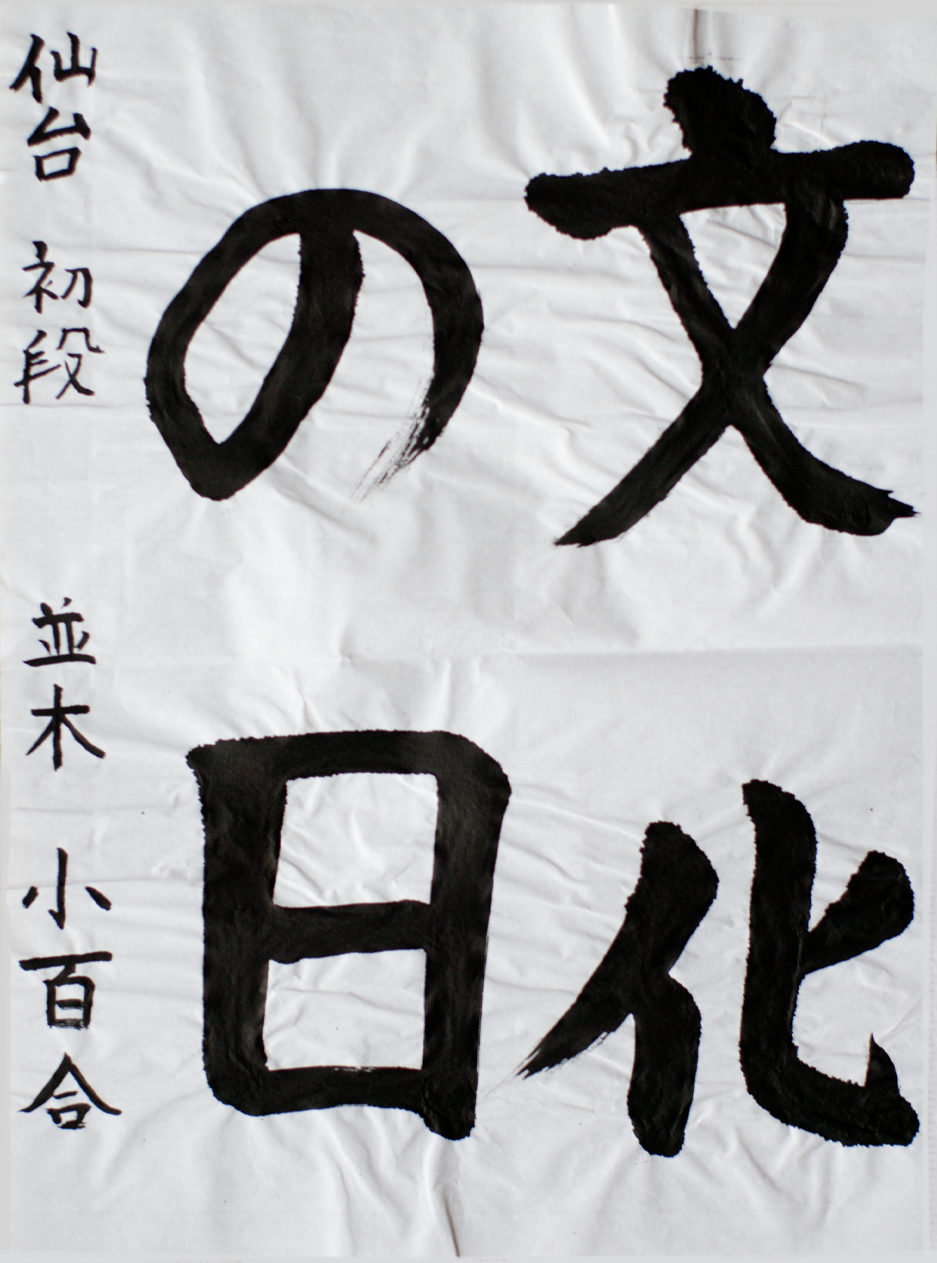 文化
の日
仙台 初段 並木 小百合